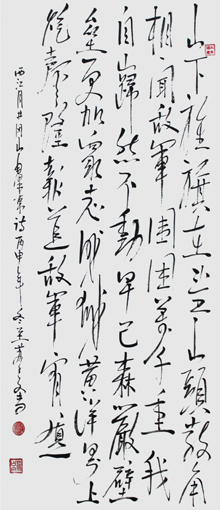 山下旌旗在望山頭鼓角
相聞敵軍圍困萬千重我
自巋然不動早已森嚴壁
壘更加眾志成城黃洋界上
炮聲隆報道敵軍宵遁
西江月井冈山毛澤東詩丙申年冬